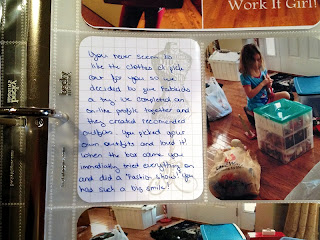 Work It Girl!
You never seem to
like the clothes I pick
out for you so we
decided to give kidbox a
a try. We completed an
on-line profile together and
they created recomended
outfits. You picked your
own outfits and loved it!
When the box came you
immediately tried everything on
and did a "Fashion Show." You
had such a big smile!